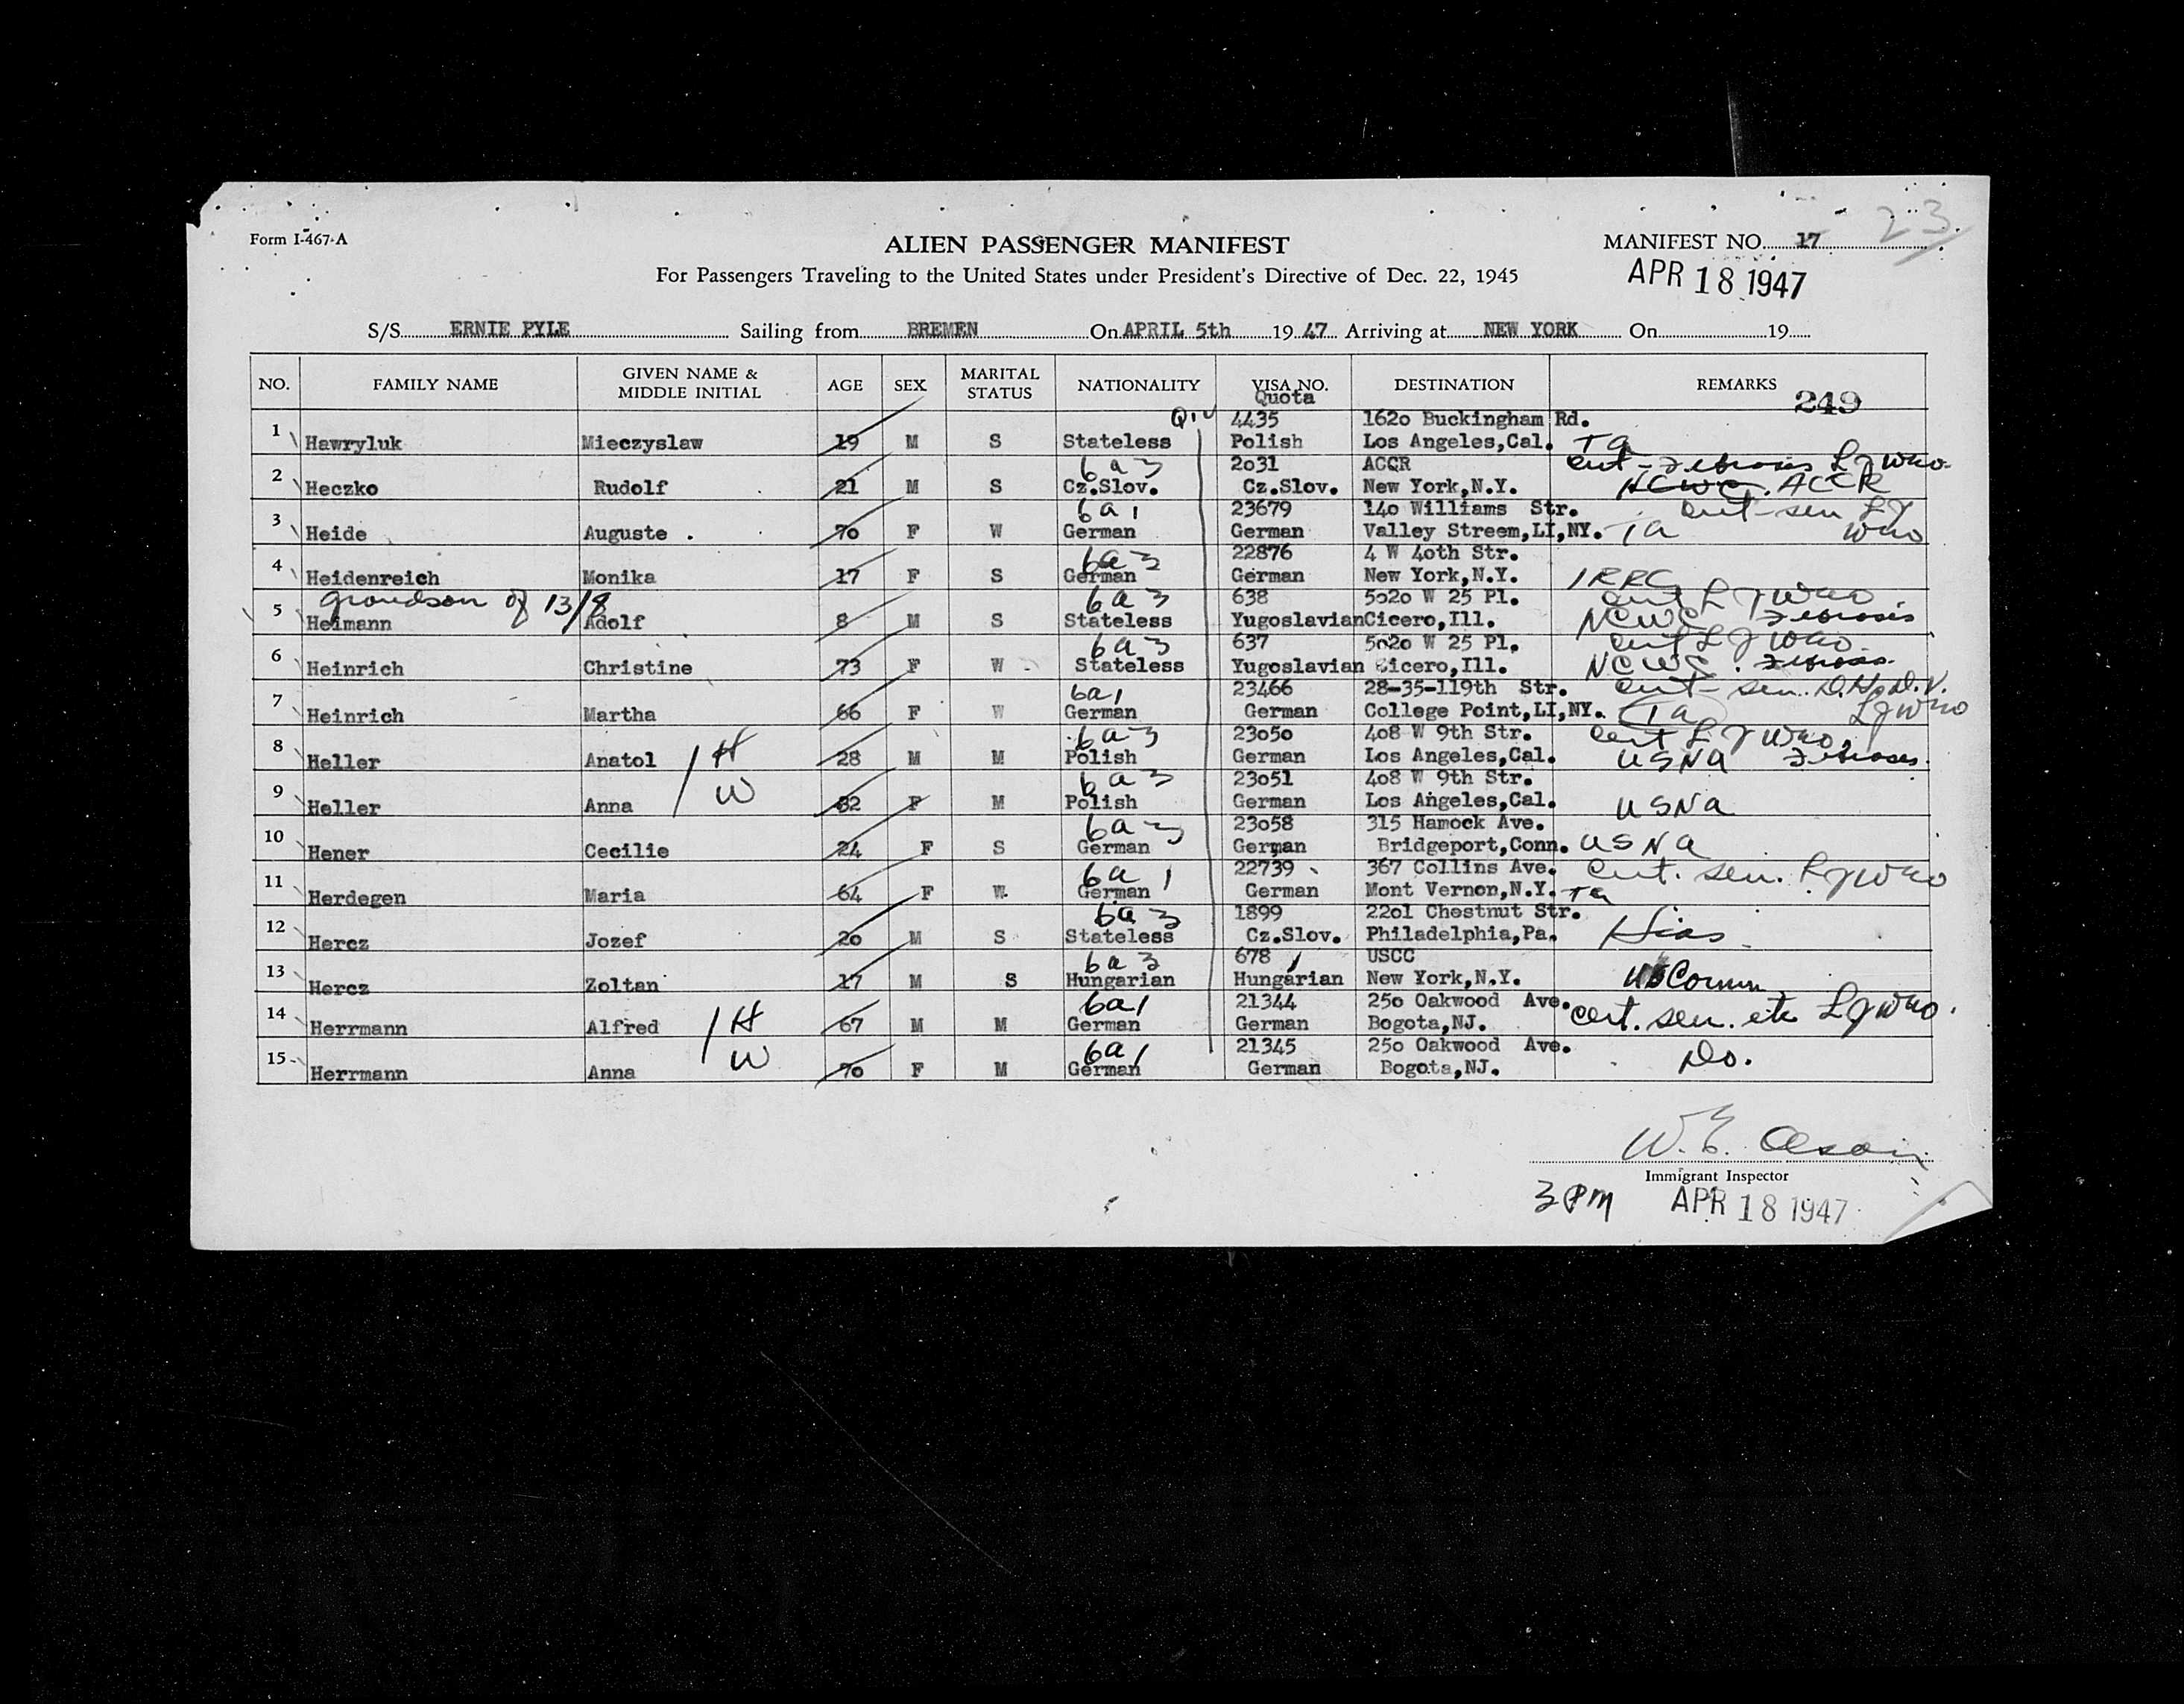 23
Form I-467-A
ALIEN PASSENGER MANIFEST
MANIFEST NO. 17
For Passengers Traveling to the United States under President's Directive of Dec. 22, 1945
APR 18 1947
S/S ERNIE PYLE Sailing from BREMEN On APRIL 5th 19 47 Arriving at NEW YORK On 19
NO. FAMILY NAME GIVEN NAME & MIDDLE INITIAL AGE SEX MARITAL STATUS NATIONALITY VISA NO. Quota DESTINATION REMARKS 249
4435 1620 Buckingham Rd.
1 Hawryluk Mieczyslaw 19 M S Stateless Polish Los Angeles,Cal. Ta
6a3 2031 ACCR cert L J who
2 Heczko Rudolf 21 M S Cz.Slov. Cz.Slov. New York,N.Y. NCWC. ACCR
6a1 23679 140 Williams Str. cert-sen L J
3 Heide Auguste . 70 F W German German Valley Streem,LI,NY. Ta who
6a3 22876 4 W 40th Str.
4 Heidenreich Monika 17 F S German German New York,N.Y. IRRC
grandson of 13/8 6a3 638 5020 W 25 Pl. cert L J who
5 Heimann Adolf 8 M S Stateless Yugoslavian Cicero,Ill. NCWC fibrosis
6a3 637 5020 W 25 Pl. cert L J who
6 Heinrich Christine 73 F W Stateless Yugoslavian Cicero,Ill. NCWC. fibrosis
6a1 23466 28-35-119th Str. cert-sen.
7 Heinrich Martha 66 F W German German College Point,LI,NY. Ta L J who
H 6a3 23050 408 W 9th Str. cert L J who
8 Heller Anatol 28 M M Polish German Los Angeles,Cal. USNA fibrosis
W 6a3 23051 408 W 9th Str.
9 Heller Anna 32 F M Polish German Los Angeles,Cal. USNA
6a3 23058 315 Hamock Ave.
10 Hener Cecilie 24 F S German German Bridgeport,Conn. USNA
6a1 22739 367 Collins Ave. Cert. sen. L J who
11 Herdegen Maria 64 F W German German Mont Vernon,N.Y. Ta
6a3 1899 2201 Chestnut Str.
12 Hercz Jozef 20 M S Stateless Cz.Slov. Philadelphia,Pa. Hias
6a3 678 USCC
13 Hercz Zoltan 17 M S Hungarian Hungarian New York,N.Y. US Comm
H 6a1 21344 250 Oakwood Ave. cert. sen. etc L J who.
14 Herrmann Alfred 67 M M German German Bogota,NJ.
W 6a1 21345 250 Oakwood Ave. Do.
15 Herrmann Anna 70 F M German German Bogota,NJ.
W. E.
Immigrant Inspector
3 PM APR 18 1947